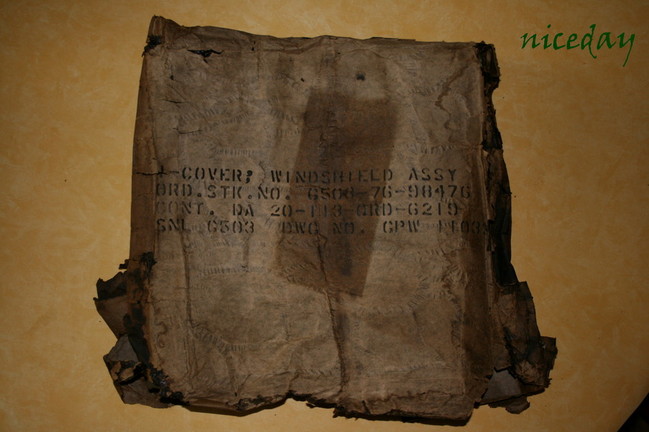 niceday
COVER; WINDSHIELD ASSY
ORD.STK.NO. G503-76-98476
CONT. DA 20-113-ORD-6219
SNL G503 DWG NO. GPW